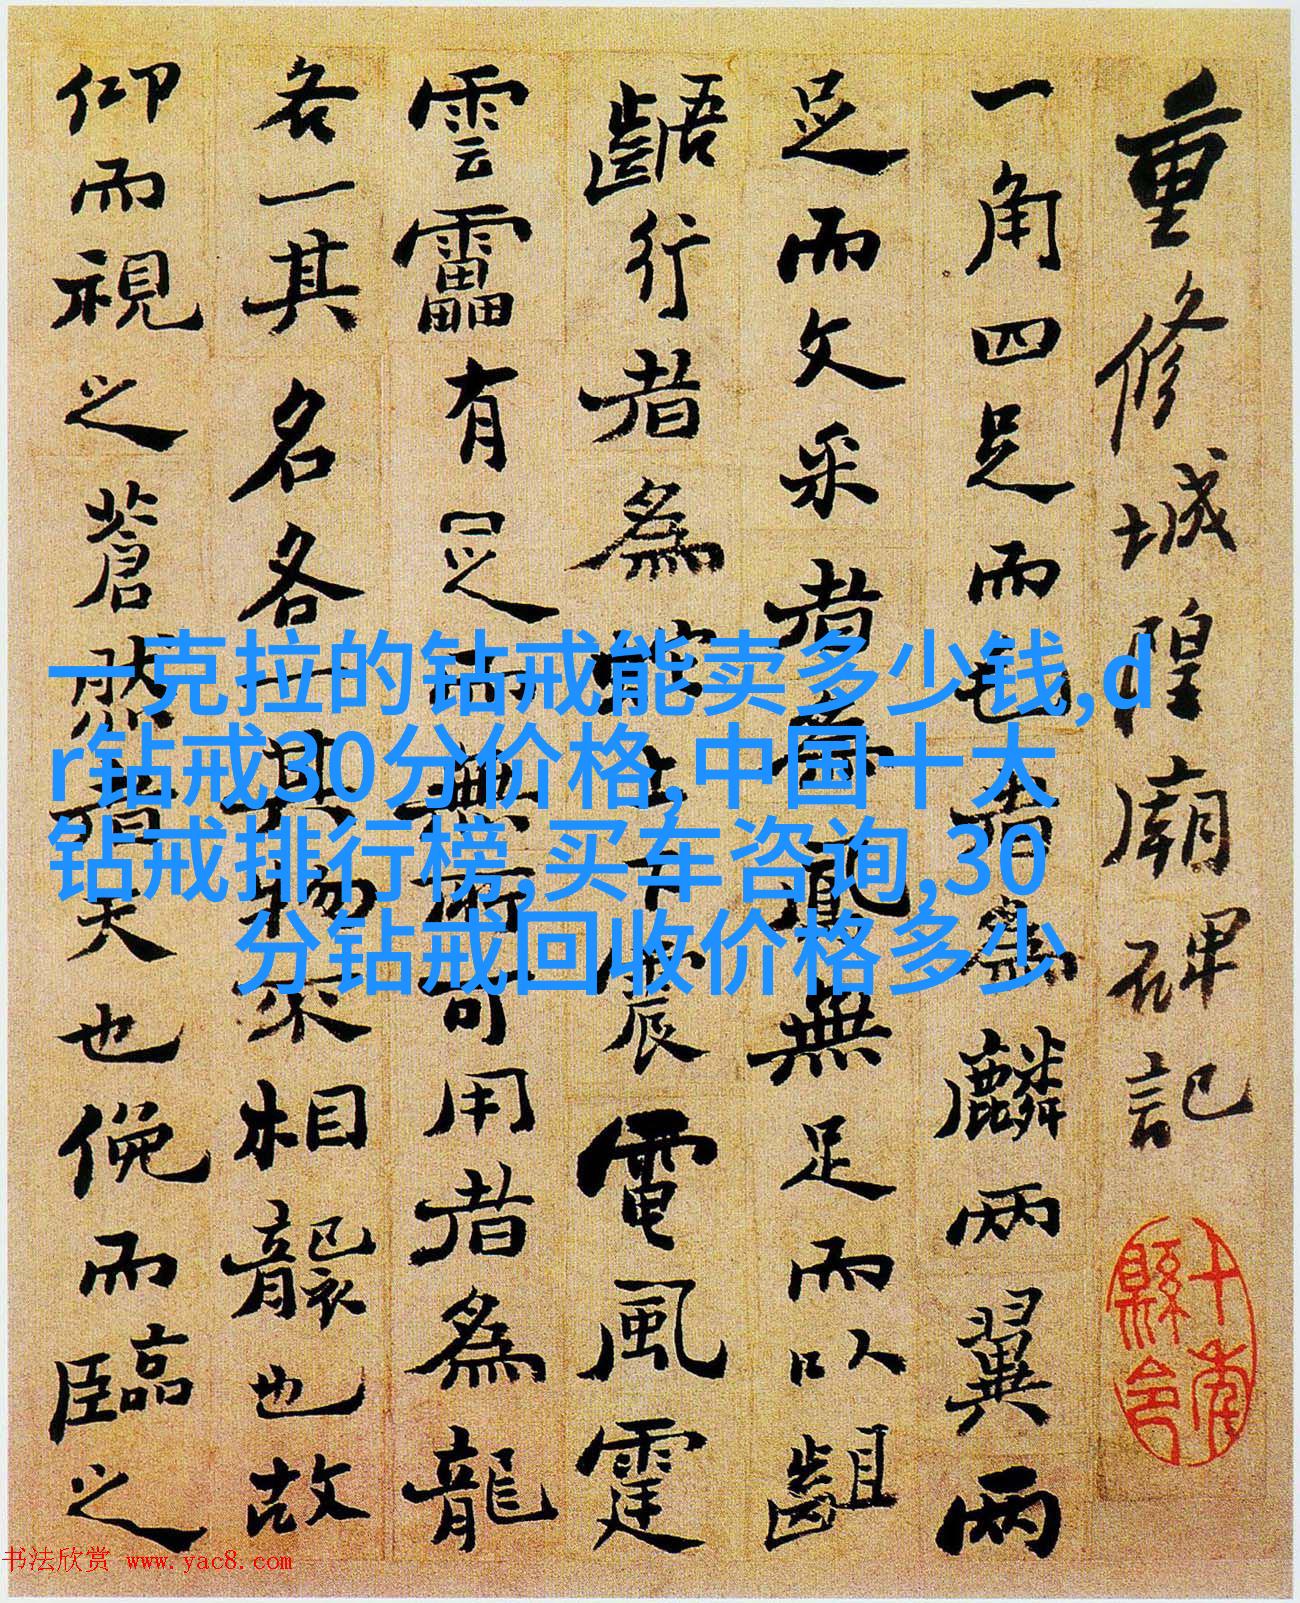 重修城隍廟碑記
一角四足而毛者為麟兩翼兩
足而文采者為鳳無足而以齟
齬行者為蛇上下震電風霆
雲靁有足而無所可用者為龍
各一其名各一其物不相襲也故
仰而視之蒼然者天也俛而臨之
十南縣令
一克拉的钻戒能卖多少钱,d
r钻戒30分价格,中国十大
钻戒排行榜,买车咨询,30
分钻戒回收价格多少
书法欣赏 www.yac8.com